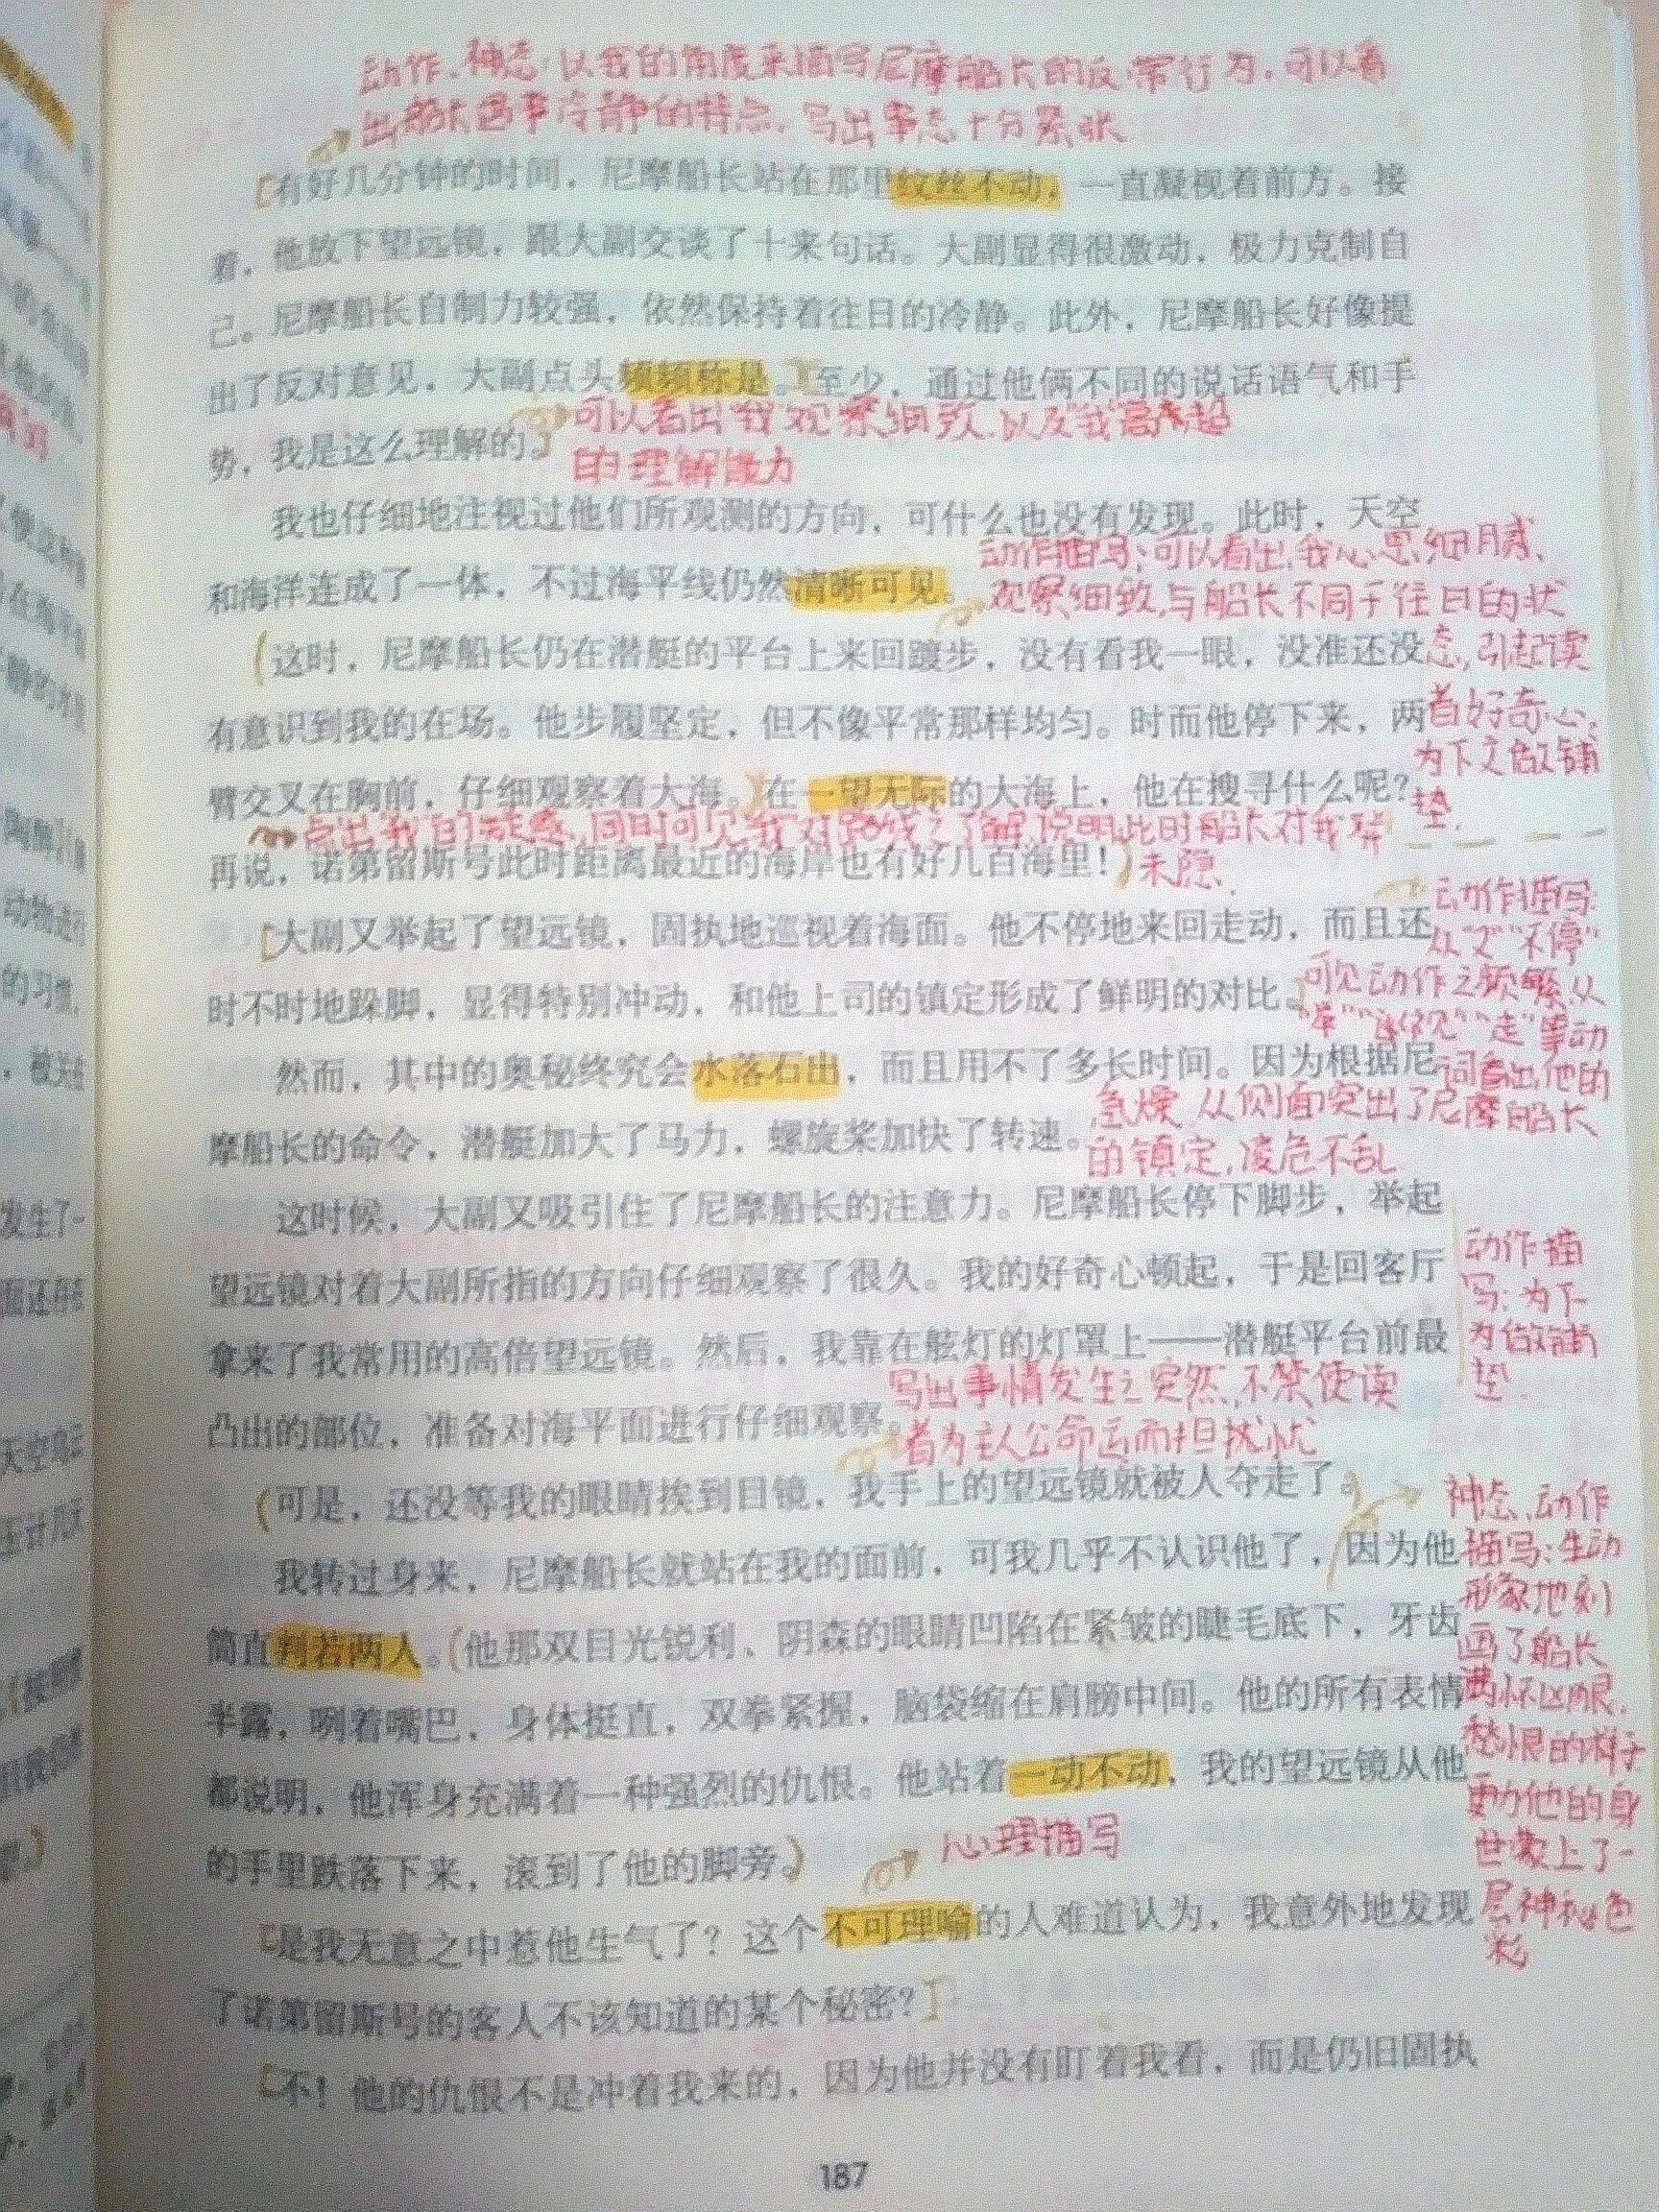 动作、神态:以我的角度来描写尼摩船长的反常行为,可以看
出船长遇事冷静的特点,写出事态十分紧张
有好几分钟的时间，尼摩船长站在那里纹丝不动，一直凝视着前方。接
着，他放下望远镜，跟大副交谈了十来句话。大副显得很激动，极力克制自
己。尼摩船长自制力较强，依然保持着往日的冷静。此外，尼摩船长好像提
出了反对意见，大副点头频频称是。至少，通过他俩不同的说话语气和手
势，我是这么理解的。
可以看出“我”观察细致,以及“我”高超
的理解能力
我也仔细地注视过他们所观测的方向，可什么也没有发现。此时，天空
和海洋连成了一体，不过海平线仍然清晰可见。
动作描写:可以看出,我心思细腻、
观察细致,与船长不同于往日的状
态,引起读
者好奇心,
为下文做铺
垫.
这时，尼摩船长仍在潜艇的平台上来回踱步，没有看我一眼，没准还没
有意识到我的在场。他步履坚定，但不像平常那样均匀。时而他停下来，两
臂交叉在胸前，仔细观察着大海。在一望无际的大海上，他在搜寻什么呢？
点出“我”的 同时可见“我”对路线之了解,说明此时船长对我
未隐.
再说，诺第留斯号此时距离最近的海岸也有好几百海里！
大副又举起了望远镜，固执地巡视着海面。他不停地来回走动，而且还
时不时地跺脚，显得特别冲动，和他上司的镇定形成了鲜明的对比。
动作描写:
从“又”“不停”
可见动作之频繁,从
“举”“巡视”“走”等动
词看出他的
急燥,从侧面突出了尼摩船长
的镇定,凌危不乱
然而，其中的奥秘终究会水落石出，而且用不了多长时间。因为根据尼
摩船长的命令，潜艇加大了马力，螺旋桨加快了转速。
这时候，大副又吸引住了尼摩船长的注意力。尼摩船长停下脚步，举起
望远镜对着大副所指的方向仔细观察了很久。我的好奇心顿起，于是回客厅
拿来了我常用的高倍望远镜。然后，我靠在舷灯的灯罩上——潜艇平台前最
凸出的部位，准备对海平面进行仔细观察。
动作描
写:为下
为做铺
垫.
写出事情发生之突然,不禁使读
者为主人公命运而担扰忧
可是，还没等我的眼睛挨到目镜，我手上的望远镜就被人夺走了。
我转过身来，尼摩船长就站在我的面前，可我几乎不认识他了，因为他
简直判若两人。他那双目光锐利、阴森的眼睛凹陷在紧皱的睫毛底下，牙齿
半露，咧着嘴巴，身体挺直，双拳紧握，脑袋缩在肩膀中间。他的所有表情
都说明，他浑身充满着一种强烈的仇恨。他站着一动不动，我的望远镜从他
的手里跌落下来，滚到了他的脚旁。
神态、动作
描写:生动
形象地刻
画了船长
满怀仇恨,
愁恨的样子
更为他的身
世蒙上了一
层神秘色
彩
心理描写
是我无意之中惹他生气了？这个不可理喻的人难道认为，我意外地发现
了诺第留斯号的客人不该知道的某个秘密？
不！他的仇恨不是冲着我来的，因为他并没有盯着我看，而是仍旧固执
187